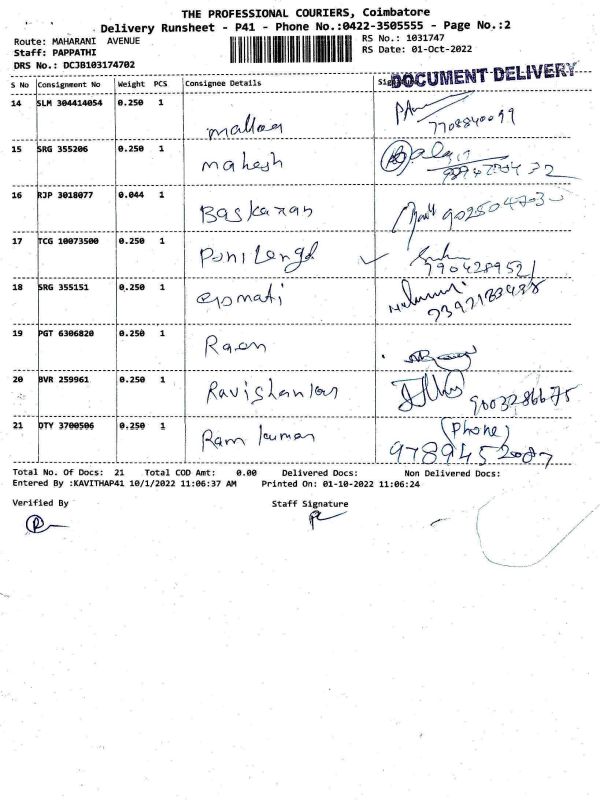 THE PROFESSIONAL COURIERS, Coimbatore
Delivery Runsheet - P41 - Phone No.:0422-3505555 - Page No.:2
Route: MAHARANI AVENUE RS No.: 1031747
Staff: PAPPATHI RS Date: 01-Oct-2022
DRS No.: DCJB103174702
DOCUMENT DELIVERY
S No Consignment No Weight PCS Consignee Details
14 SLM 304414054 0.250 1
7708840099
15 SRG 355206 0.250 1 mahesh
16 RJP 3018077 0.044 1 Baskaran
17 TCG 10073500 0.250 1
7904289521
18 SRG 355151 0.250 1 Gomati
19 PGT 6306820 0.250 1
20 BVR 259961 0.250 1 Ravishankar
9003286675
21 DTY 3700506 0.250 1 Ram kumar (Phone)
9789452087
Total No. Of Docs: 21 Total COD Amt: 0.00 Delivered Docs: Non Delivered Docs:
Entered By :KAVITHAP41 10/1/2022 11:06:37 AM Printed On: 01-10-2022 11:06:24
Verified By Staff Signature